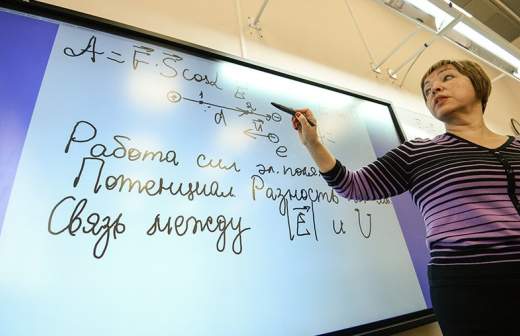 A = F⃗ · S⃗ cosα
1 E⃗ 2
d v⃗
e
Работа сил эл. поля
Потенциал Разность
Связь между |E⃗| и U